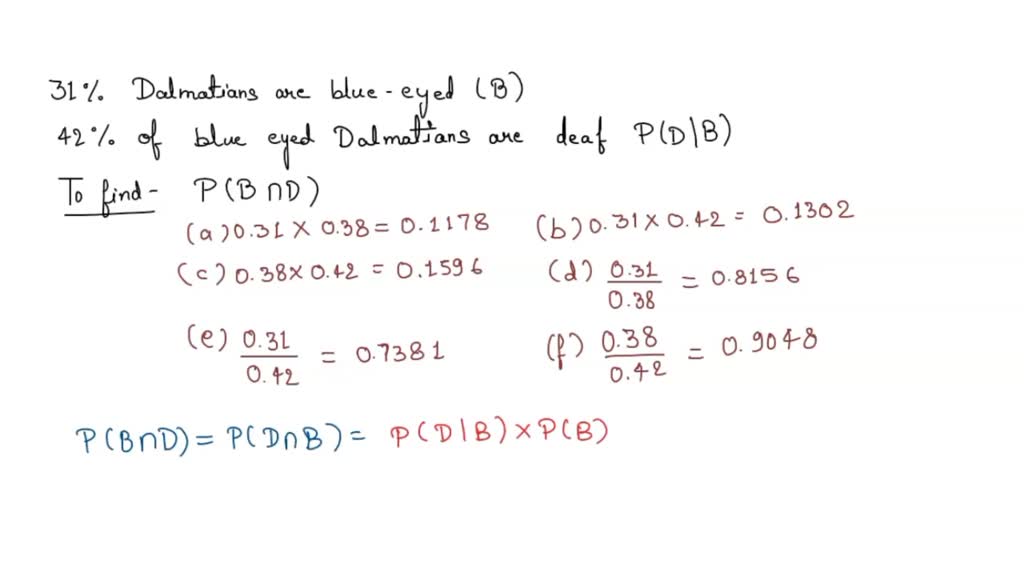 31% Dalmatians are blue-eyed (B)
42% of blue eyed Dalmatians are deaf P(D|B)
To find- P(B∩D)
(a) 0.31 × 0.38 = 0.1178 (b) 0.31 × 0.42 = 0.1302
(c) 0.38 × 0.42 = 0.1596 (d) 0.31/0.38 = 0.8156
(e) 0.31/0.42 = 0.7381 (f) 0.38/0.42 = 0.9048
P(B∩D) = P(D∩B) = P(D|B) × P(B)